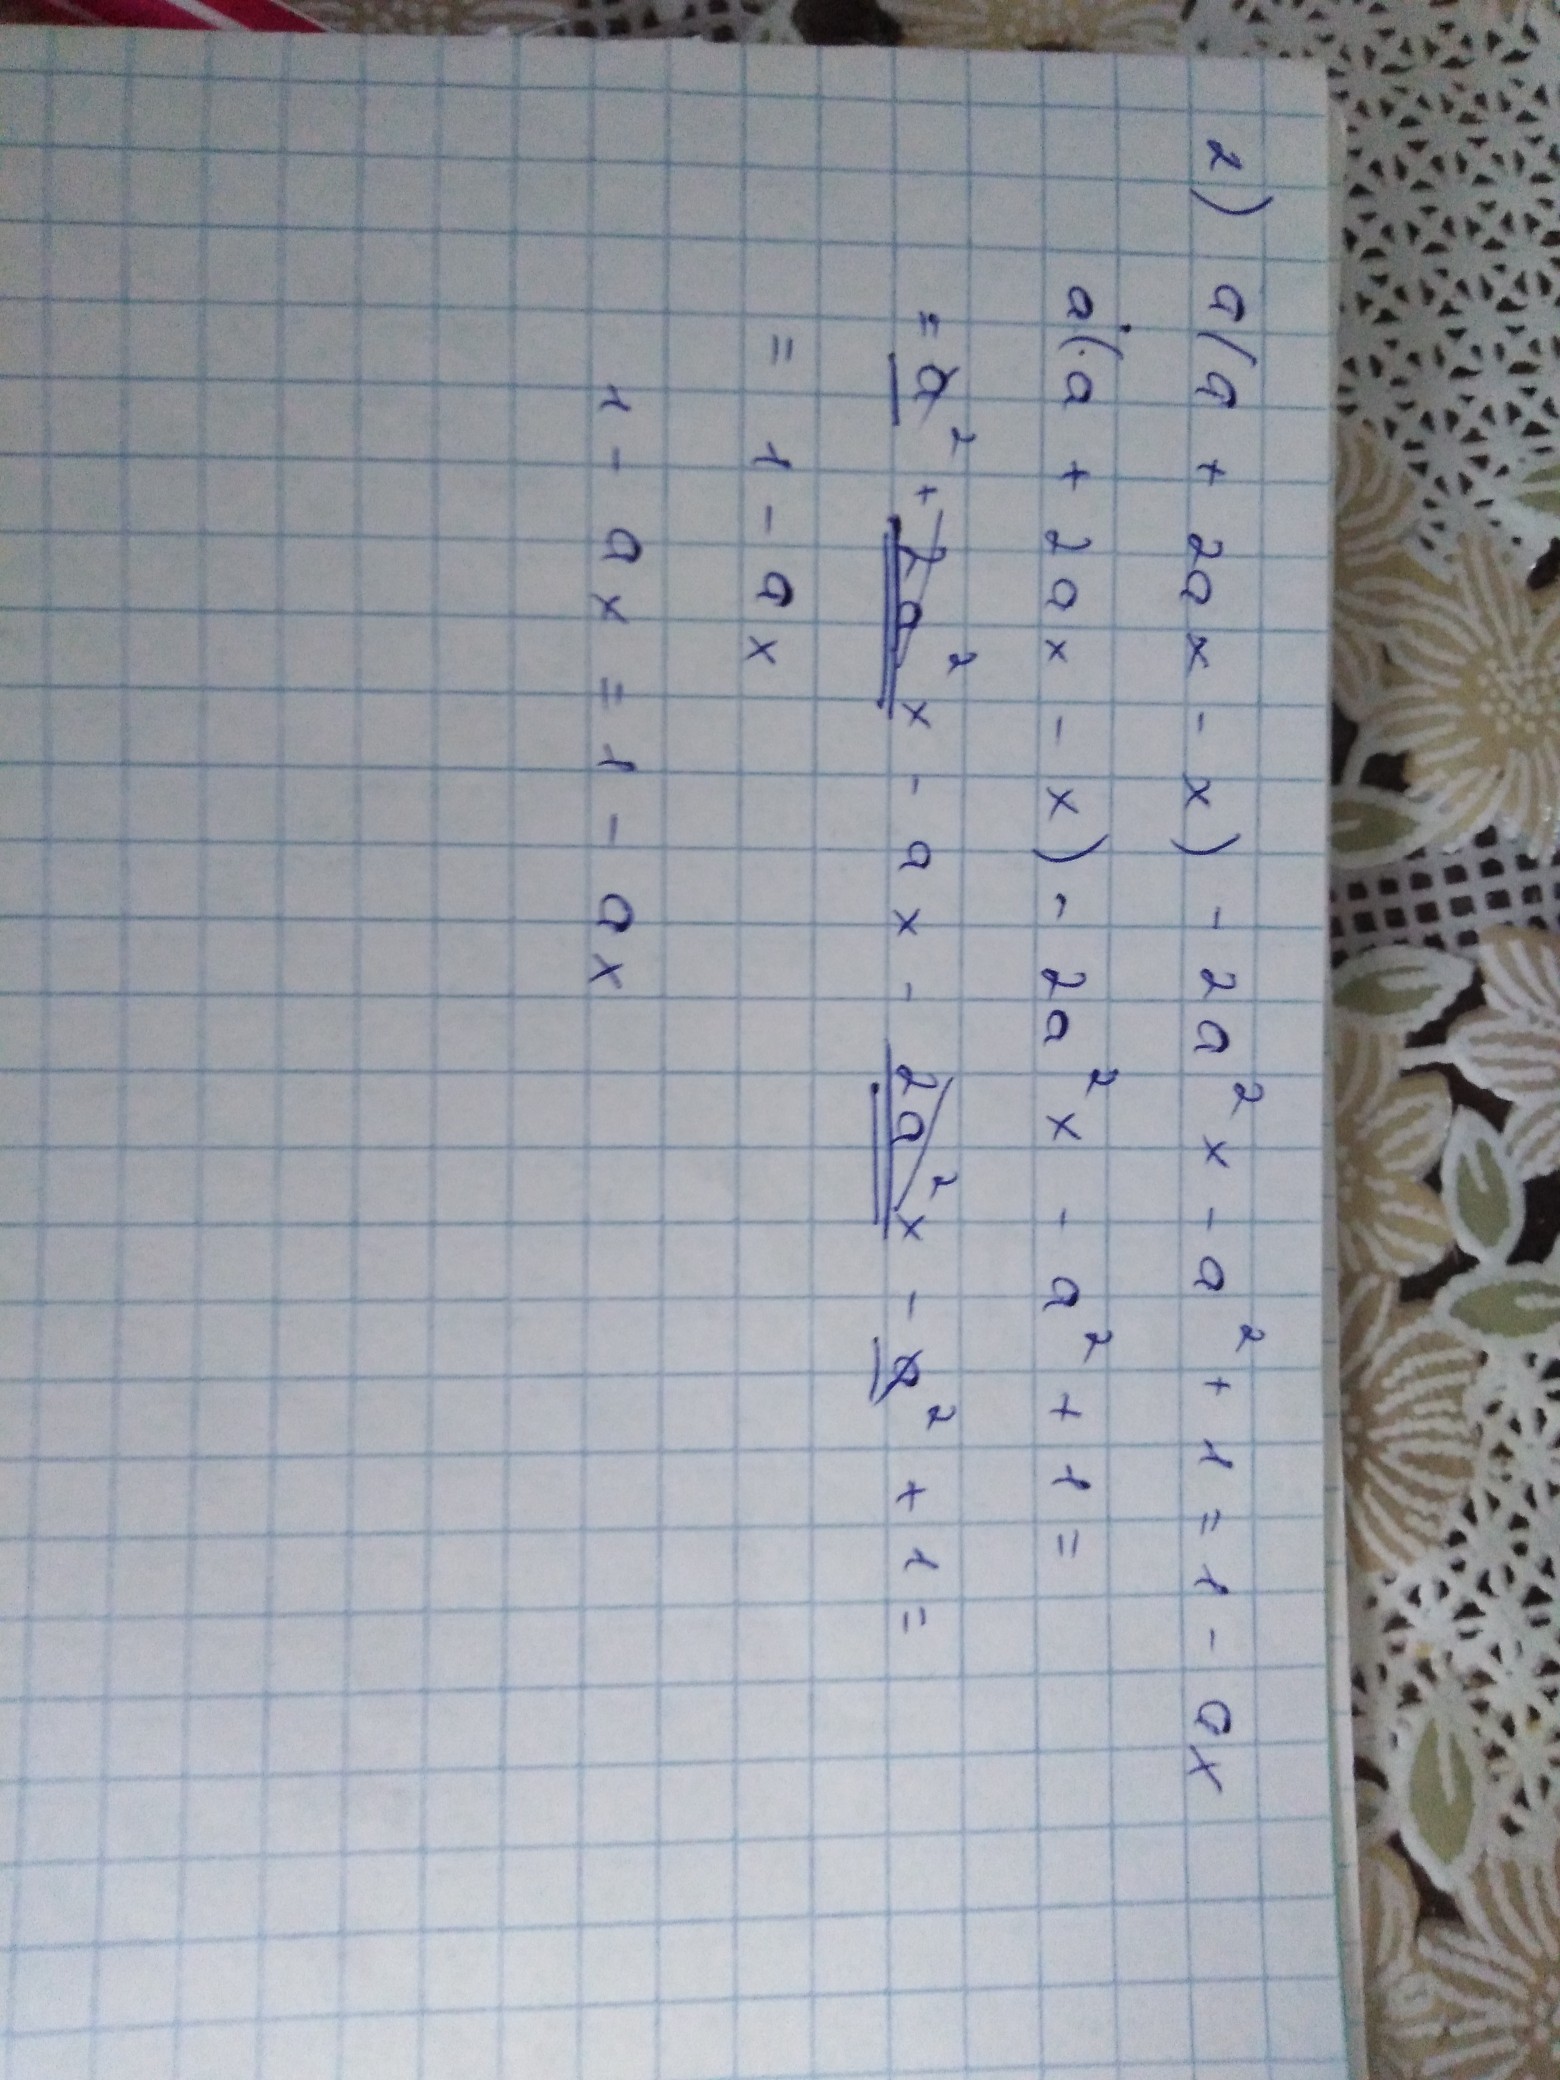 2) a(a + 2ax - x) - 2a²x - a² + 1 = 1 - ax
a(a + 2ax - x) - 2a²x - a² + 1 =
= a² + 2a²x - ax - 2a²x - a² + 1 =
= 1 - ax
1 - ax = 1 - ax